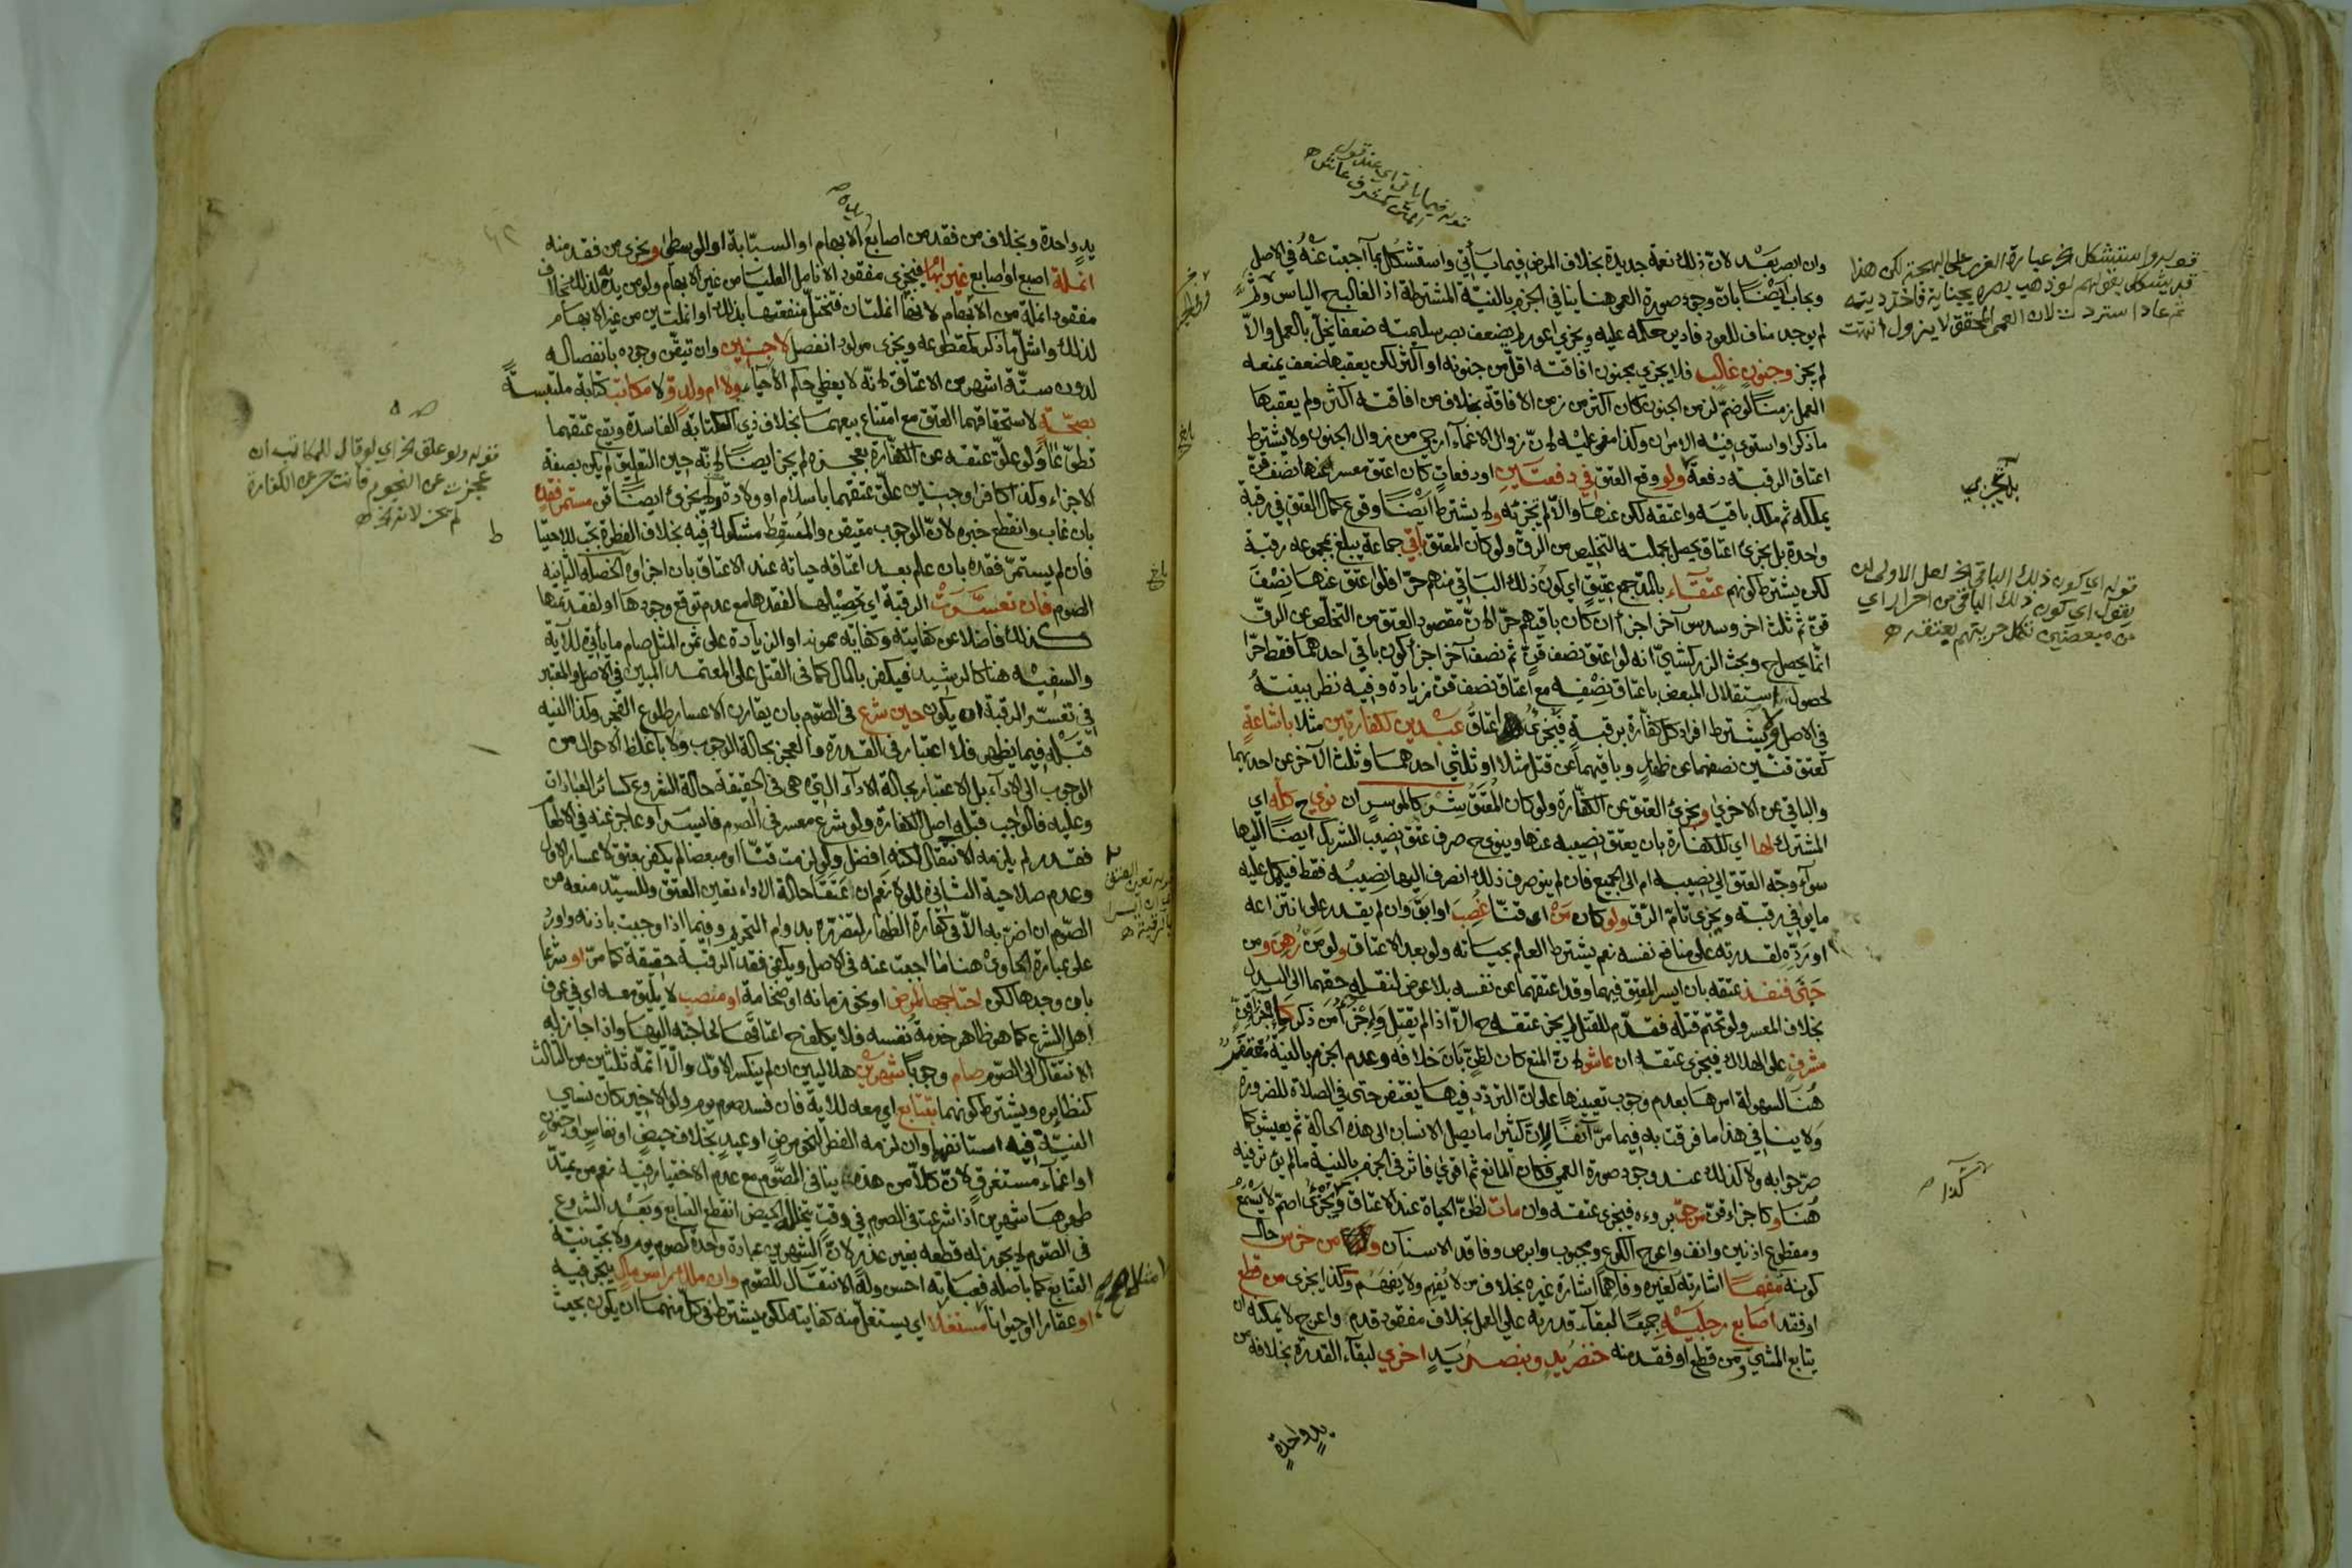 وان ابصر بعد لان ذلك نعمة جديدة بخلاف المرض فيما يأتي واستشكل بما اجبت عنه في الاصل
ويجاب ايضا بان وجود صورة العمى هنا ينافي الجزم بالنية المشترطة اذ الغالب الياس
لم يوجد مناف للعود فادير حكمه عليه ويجزي اعور لم يضعف بصر سليمته ضعفا يخل بالعمل والا
لم يجز وجنون غالب فلا يجزي مجنون افاقته اقل من جنونه او اكثر لكن يعقبها ضعف يمنعه
العمل زمنا لو ضم لزمن الجنون كان اكثر من زمن الافاقة بخلاف من افاقته اكثر ولم يعقبها
ما ذكر او استوى فيه الامران وكذا مغمى عليه لان زوال الاغماء ارجى من زوال الجنون ولا يشترط
اعتاق الرقبة دفعة ولو وقع العتق في دفعتين او دفعات كان اعتق معسر عنها نصف قن
يملكه ثم ملك باقيه واعتقه لكن عنها والا لم تجزئه ولا يشترط ايضا وقوع كمال العتق في رقبة
واحدة بل يجزئ اعتاق يحصل بجملته التخليص من الرق ولو كان المعتق باقي جماعة يبلغ مجموعه رقبة
لكن يشترط كونهم عتقاء بالمد جمع عتيق اي كون ذلك الباقي منهم حرا فلو اعتق عنها نصف
قن ثم ثلث اخر وسدس آخر اجزأ ان كان باقيهم حرا لان مقصود العتق من التخلص عن الرق
انما يحصل ح وبحث الزركشي انه لو اعتق نصف قن ثم نصف آخر اجزأ كون باقي احدهما فقط حرا
لحصول استقلال المبعض باعتاق نصفه مع اعتاق نصف قن زيادة وفيه نظر بينته
في الاصل ولا يشترط افراد كل كفارة برقبة فيجزئ اعتاق عبدين لكفارتين مثلا باشاعة
كعتق قنين نصفهما عن ظهار وباقيهما عن قتل مثلا او ثلثي احدهما وثلث الآخر عن احديهما
والباقي عن الاخرى ويجزئ العتق عن الكفارة ولو كان المعتق شركا لموسر ان نوى ح كله اي
المشترك لها اي للكفارة بان يعتق نصيبه عنها وينوي ح صرف عتق نصيب الشريك ايضا اليها
سواء وجه العتق الى نصيبه ام الى الجميع فان لم ينو صرف ذلك انصرف اليها نصيبه فقط فيكمل عليه
ما يوفي رقبة ويجزي تام الرق ولو كان من اي قنا غصب او ابق وان لم يقدر على انتزاعه
او رده لقدرته على منافع نفسه نعم يشترط العلم بحياته ولو بعد الاعتاق ولو من رهن ومن
جنى فنفذ عتقه بان ايسر المعتق فيهما وقد اعتقهما عن نفسه بلا عوض لنقله حقهما الى البدل
بخلاف المعسر ولو تحتم قتله فقدم للقتل لم يجز عتقه ح الا اذا لم يقتل
مشرف على الهلاك فيجزي عتقه ان عاش لان المنع كان لظن بان خلافه وعدم الجزم بالنية مغتفر
هنا لسهولة امرها بعدم وجوب تعيينها على ان التردد فيها يغتفر حتى في الصلاة للضرورة
ولا ينافي هذا ما فرقت به فيما مر آنفا لان كثيرا ما يصل الانسان الى هذه الحالة ثم يعيش كما
صرحوا به ولا كذلك عند وجود صورة العمى فكان المانع ثم اقوى فاثر في الجزم بالنية ما لم يؤثر فيه
هنا وكاجزاء قن مرجى برؤه فيجزي عتقه وان مات لظن الحياة عند الاعتاق ويجزئ اصم لا يسمع
ومقطوع اذنين وانف واعرج الكوع ومجبوب وابرص وفاقد الاسنان ومن خرس حال
كونه مفهما اشارته لغيره وفاهما اشارة غيره بخلاف من لا يفهم ولا يفهم وكذا يجزي من قطع
او فقد اصابع رجليه جميعا لبقاء قدرته على العمل بخلاف مفقود قدم واعرج لا يمكنه ان
يتابع المشي ومن قطع او فقد منه خنصر يد وبنصر يد اخرى لبقاء القدرة بخلافه من
يد واحدة
قوله فيما ياتي اي عند قوله
قوله واستشكل الخ عبارة الغرر على البهجة لكن هذا
قد يشكل بقولهم لو ذهب بصره بجناية فاخذ ديته
ثم عاد استردت لان العمى المحقق لا يزول انتهت
قوله اي كون ذلك الباقي الخ لعل الاولى ان
يقول اي كون ذلك الباقي من احرار اي
من مبعضين تكمل حريتهم بعتقه ه
يد واحدة وبخلاف من فقد من اصابع الابهام او السبابة او الوسطى ويجزي من فقد منه
انملة اصبع او اصابع غير ابهام فيجزي مفقود الانامل العليا من غير الابهام ولو من يديه لذلك بخلاف
مفقود انملة من الابهام لانها انملتان فتختل منفعتها بذلك او انملتين من غير الابهام
لذلك واشل ما ذكر كمقطوعه ويجزي مولود انفصل لا جنين وان تيقن وجوده بانفصاله
لدون ستة اشهر من الاعتاق لانه لا يعطى حكم الاحياء ولا ام ولد ولا مكاتب كتابة ملتبسة
بصحة لاستحقاقهما العتق مع امتناع بيعهما بخلاف ذي الكتابة الفاسدة ويقع عتقهما
تطوعا ولو علق عتقه عن الكفارة بعجزه لم يجز ايضا لانه حين التعليق لم يكن بصفة
الاجزاء وكذا كافرا وجنين علق عتقهما باسلام او ولادة ولا يجزئ ايضا قن مستمر فقد
بان غاب وانقطع خبره لان الوجوب متيقن والمسقط مشكوك فيه بخلاف الفطرة تجب للاحتياط
فان لم يستمر فقده بان علم بعد اعتاقه حياته عند الاعتاق بان اجزاؤه الخصلة الثانية
الصوم فان تعسرت الرقبة اي تحصيلها لفقدها مع عدم توقع وجودها او لفقد ثمنها
كذلك فاضلا عن كفايته وكفاية ممونه او الزيادة على ثمن المثل صام ما يأتي للآية
والسفيه هنا كالرشيد فيكفر بالمال كما في القتل على المعتمد المبين في الاصل والمعتبر
في تعسر الرقبة ان يكون حين شرع في الصوم بان يقارن الاعسار طلوع الفجر وكذا النية
قبله فيما يظهر فلا اعتبار في القدرة والعجز بحالة الوجوب ولا باغلظ الاحوال من
الوجوب الى الاداء بل الاعتبار بحالة الاداء التي هي في الحقيقة حالة الشروع كسائر العبادات
وعليه فالواجب قبله اصل الكفارة ولو شرع معسر في الصوم فايسر او عاجز عنه في الاطعام
فقدر لم يلزمه الانتقال لكنه افضل ولو لزمت قنا او مبعضا لم يكفر بعتق لاعسار الاول
وعدم صلاحية الثاني للولاء نعم ان عتقا حالة الاداء تعين العتق وللسيد منعه من
الصوم ان اضر به الا في كفارة الظهار لتضرره بدوام التحريم وفيما اذا وجبت باذنه واورد
على عبارة الحاوي هنا ما اجبت عنه في الاصل ويكفي فقد الرقبة حقيقة كما مر او شرعا
بان وجدها لكن احتاجها لمرض او نحو زمانة او ضخامة او منصب لا يليق معه اي في عرف
اهل الشرع كما هو ظاهر خدمة نفسه فلا يكلف ح اعتاقها لحاجته اليها واذا جاز له
الانتقال الى الصوم صام وجوبا شهرين هلاليين ان لم ينكسر الاول والا اتمه ثلاثين من الثالث
كنظايره ويشترط كونهما بتتابع اي معه للآية فان فسد صوم يوم ولو الاخير كان نسي
النية فيه استانفهما وان لزمه الفطر لنحو مرض او عيد بخلاف حيض او نفاس او جنون
او اغماء مستغرق لان كلا من هذه ينافي الصوم مع عدم الاختيار فيه نعم من يمتد
طهرها شهرين اذا شرعت في الصوم في وقت يتخلله الحيض انقطع التتابع وبعد الشروع
في الصوم لا يجوز له قطعه بغير عذر لان الشهرين عبادة واحدة كصوم يوم ولا تجب نية
التتابع كما باصله فعبارته احسن وله الانتقال للصوم وان ملك راس مال يتجر فيه
او عقارا او حيوانا مستغلا اي يستغل منه كفايته لكن يشترط في كل منهما ان يكون بحيث
قوله ولو علق الخ اي لو قال للمكاتب ان
عجزت عن النجوم فانت حر عن الكفارة
لم يجز لانه الخ ه
ط